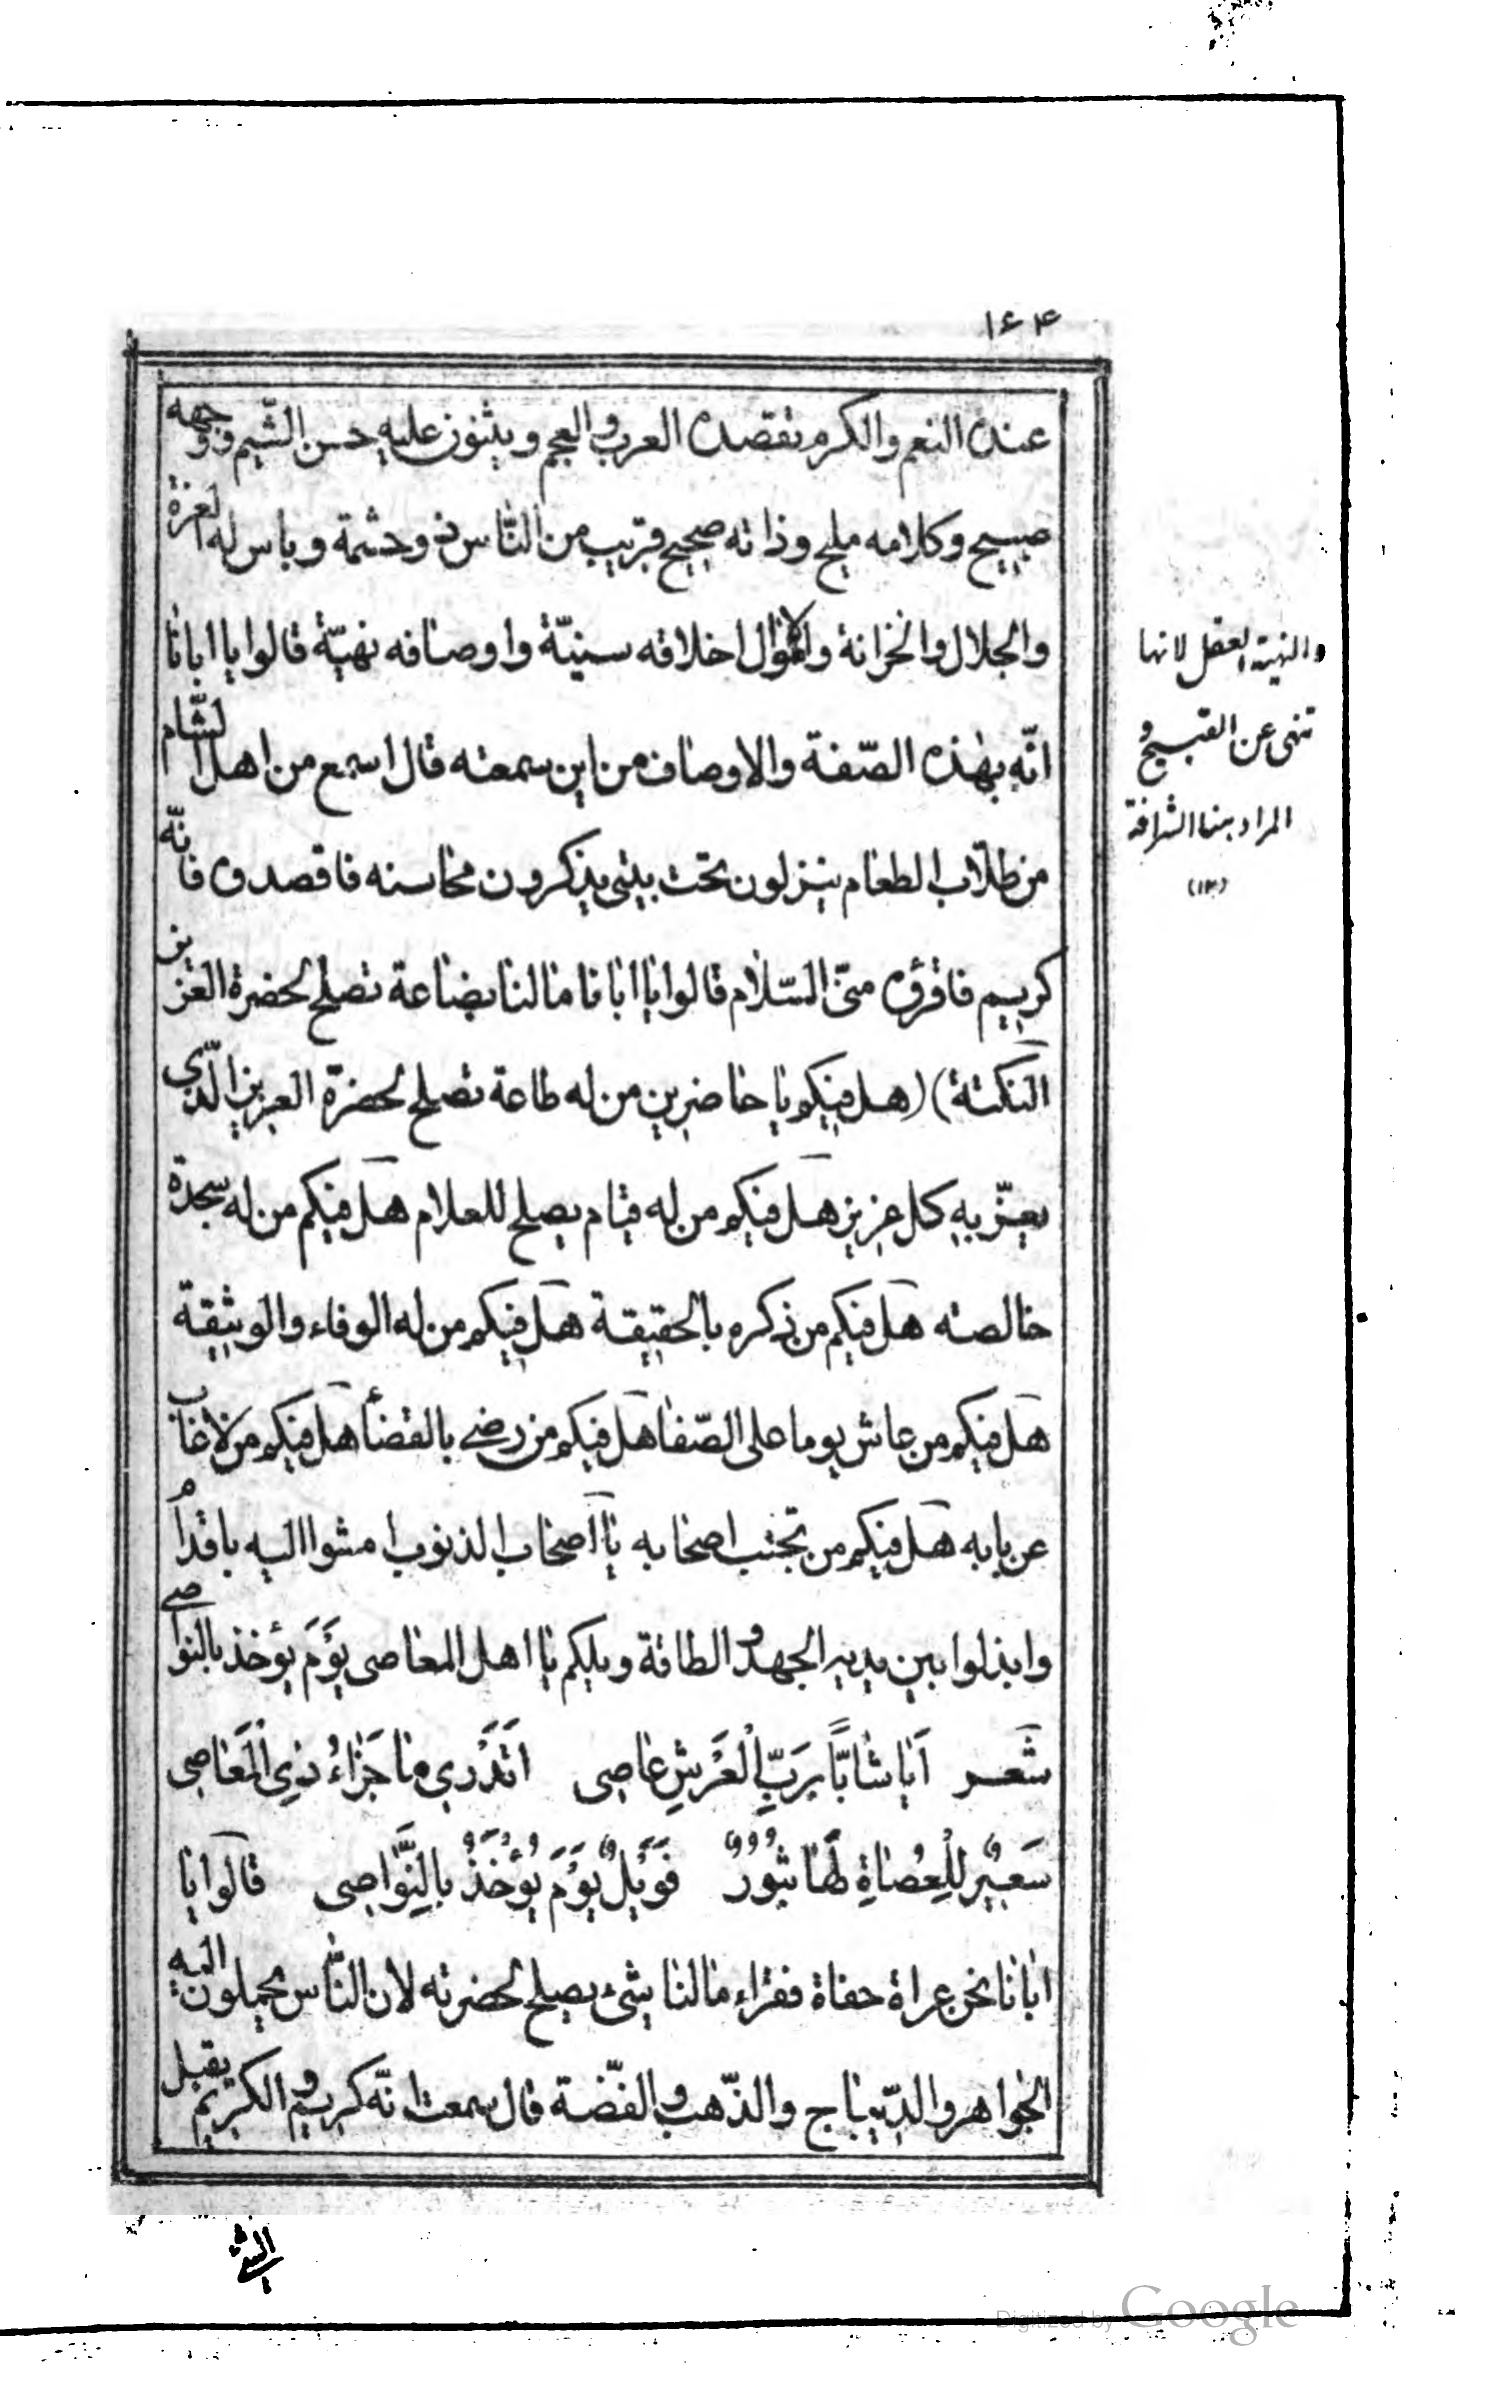 ١٤٣
عنده النعم والكرم تقصده العرب والعجم ويثنون عليه حسن الشيم ووجهه
صبيح وكلامه مليح وذاته صحيح قريب من الناس ذو حشمة وباس له العزة
والجلال والخزانة والاموال اخلاقه سنيّة واوصافه نهيّة قالوا يا ابانا
انّه بهذه الصّفة والاوصاف من اين سمعته قال اسمع من اهل الشّام
من طلّاب الطعام ينزلون تحت بيتى يذكرون محاسنه فاقصدوه فانّه
كريم فاقرؤه منّى السّلام قالوا يا ابانا ما لنا بضاعة تصلح لحضرة العزيز
النكتة) (هل فيكم يا حاضرين من له طاعة تصلح لحضرة العزيز الّذي
يعزّ به كل عزيز هل فيكم من له قيام يصلح للعلام هل فيكم من له سجدة
خالصته هل فيكم من ذكره بالحقيقة هل فيكم من له الوفاء والوثيقة
هل فيكم من عاش يوما على الصّفا هل فيكم من رضى بالقضا هل فيكم من لا غاب
عن بابه هل فيكم من تجنب اصحابه يا اصحاب الذنوب امشوا اليه باقدام
وابذلوا بين يديه الجهد والطاقة ويلكم يا اهل المعاصى يَوْمَ يؤخذ بالنواصى
شعر اَيا شابًّا بِرَبِّ الْعَرْشِ عاصِى اَتَدْرِي ما جَزاءُ ذِي الْمَعاصِى
سَعِيرٌ لِلْعُصاةِ لَها ثُبُورٌ فَوَيْلٌ يَوْمَ يُؤْخَذُ بِالنَّواصِى قالوا يا
ابانا نحن عراة حفاة فقراء ما لنا شئ يصلح لحضرته لان النّاس يحملون اليه
الجواهر والدّيباج والذّهب والفضّة قال سمعت انّه كريم والكريم يقبل
والنهية العقل لانها
تنهى عن القبيح و
المراد هنا الشرافة
(١٢)
Digitized by Google